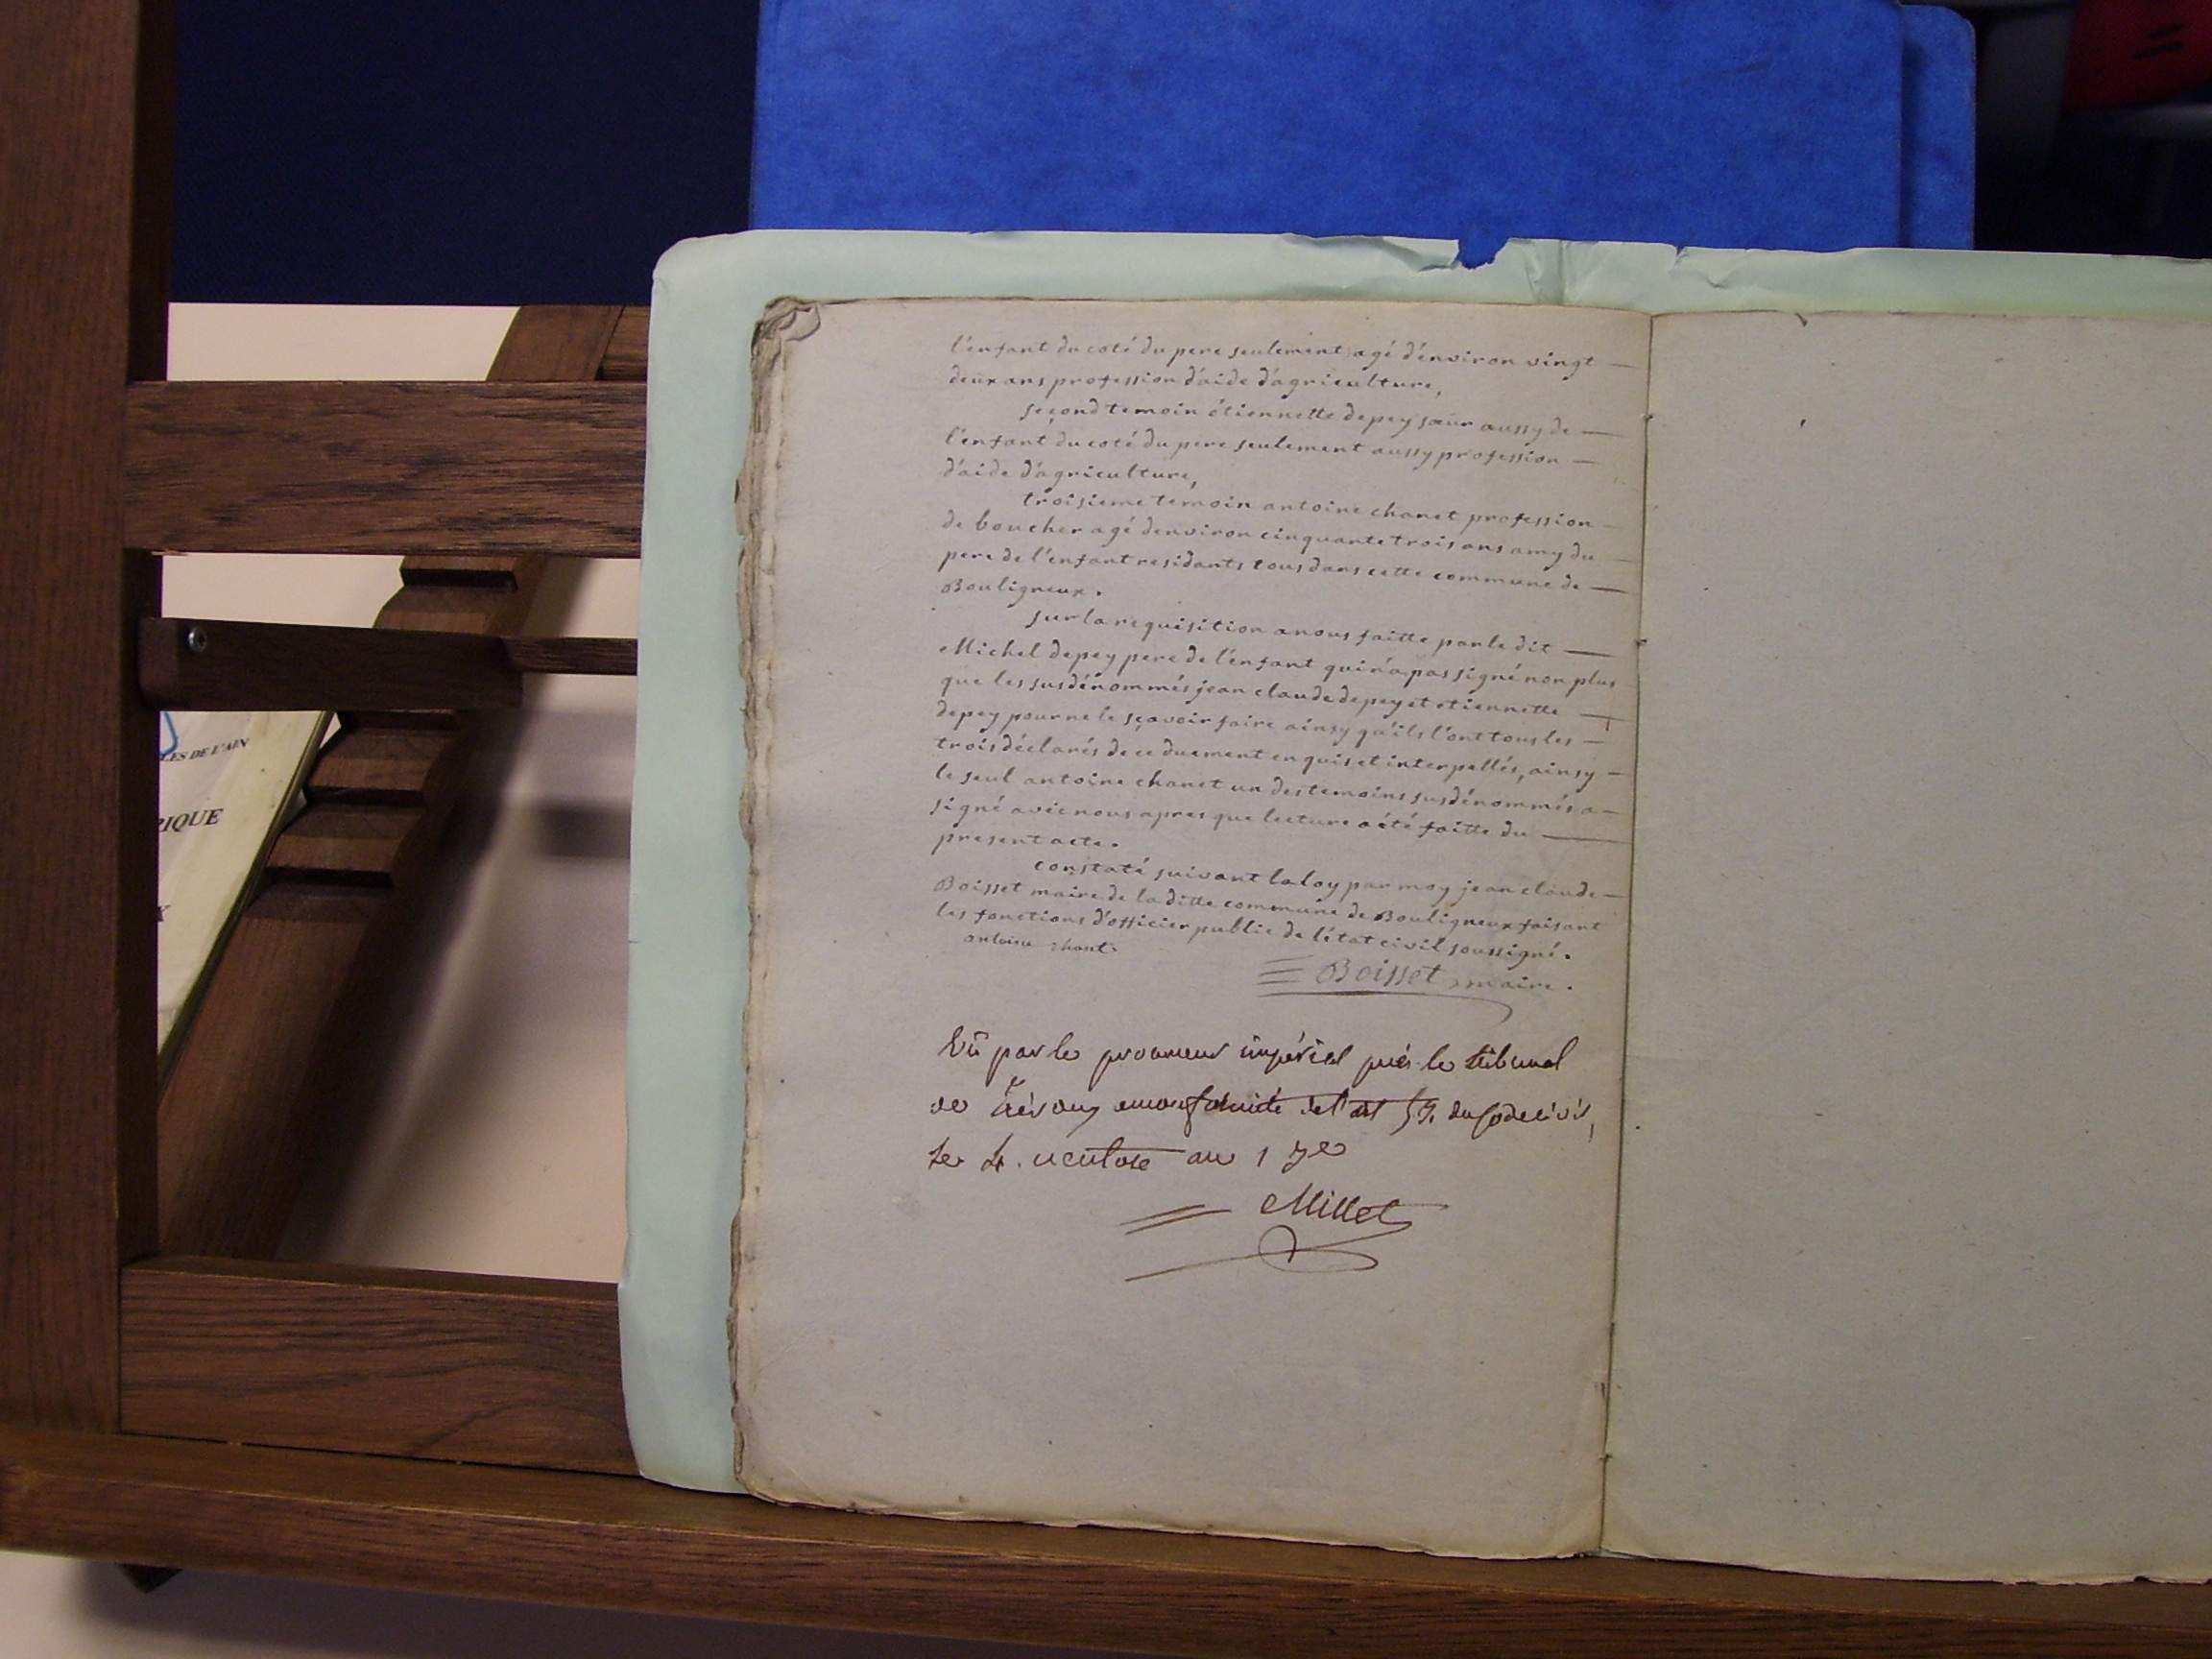 l'enfant du coté du pere seulement agé d'environ vingt
deux ans profession d'aide d'agriculture,
second temoin étiennette depey sœur aussy de
l'enfant du coté du pere seulement aussy profession
d'aide d'agriculture,
troisieme temoin antoine chanet profession
de boucher agé denviron cinquante trois ans amy du
pere de l'enfant residants tous dans cette commune de
Bouligneux.
sur la requisition a nous faitte par le dit
Michel depey pere de l'enfant qui n'a pas signé non plus
que les susdénommés jean claude depey et etiennette
depey pour ne le sçavoir faire ainsy qu'ils l'ont tous les
trois déclarés de ce duement enquis et interpellés, ainsy
le seul antoine chanet un des temoins susdénommés a
signé avec nous apres que lecture a été faitte du
present acte.
constaté suivant la loy par moy jean claude
Boisset maire de la ditte commune de Bouligneux faisant
les fonctions d'officier public de l'état civil soussigné.
antoine
Boisset, maire.
Vû par le procureur impérial près le tribunal
de Trévoux en conformité de l'art 53. du Code civil,
le 4. ventose an 13e
Millet
LES DE L'AIN
RIQUE
X